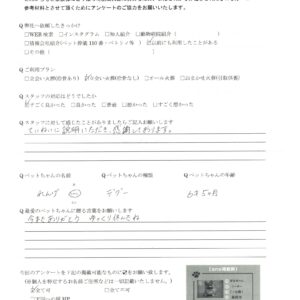 参考資料とさせて頂くためにアンケートのご協力をお願いいたします。
Q 弊社へ依頼したきっかけ
□WEB検索 □インスタグラム □知人紹介 □動物病院紹介
□情報会社紹介(ペット葬儀110番・ペトシィ等) 以前にも利用したことがある
□その他(
Q ご利用プラン
Q スタッフの対応はどうでしたか
すごく良かった □良かった □普通 □悪かった □すごく悪かった
Q スタッフに対して感じたことがありましたらご記入お願いします
ていねいに説明いただき、感謝しております。
Q ペットちゃんの名前 Q ペットちゃんの種類 Q ペットちゃんの年齢
れんげ デグー 6才5ヶ月
Q 最愛のペットちゃんに贈る言葉をお願いします
今までありがとう ゆっくり休んでね
今回のアンケートを下記の掲載可能なものに
をお願い致します。
(※個人を特定するお名前ご住所などは一切記載いたしません)
全て可 □全て不可